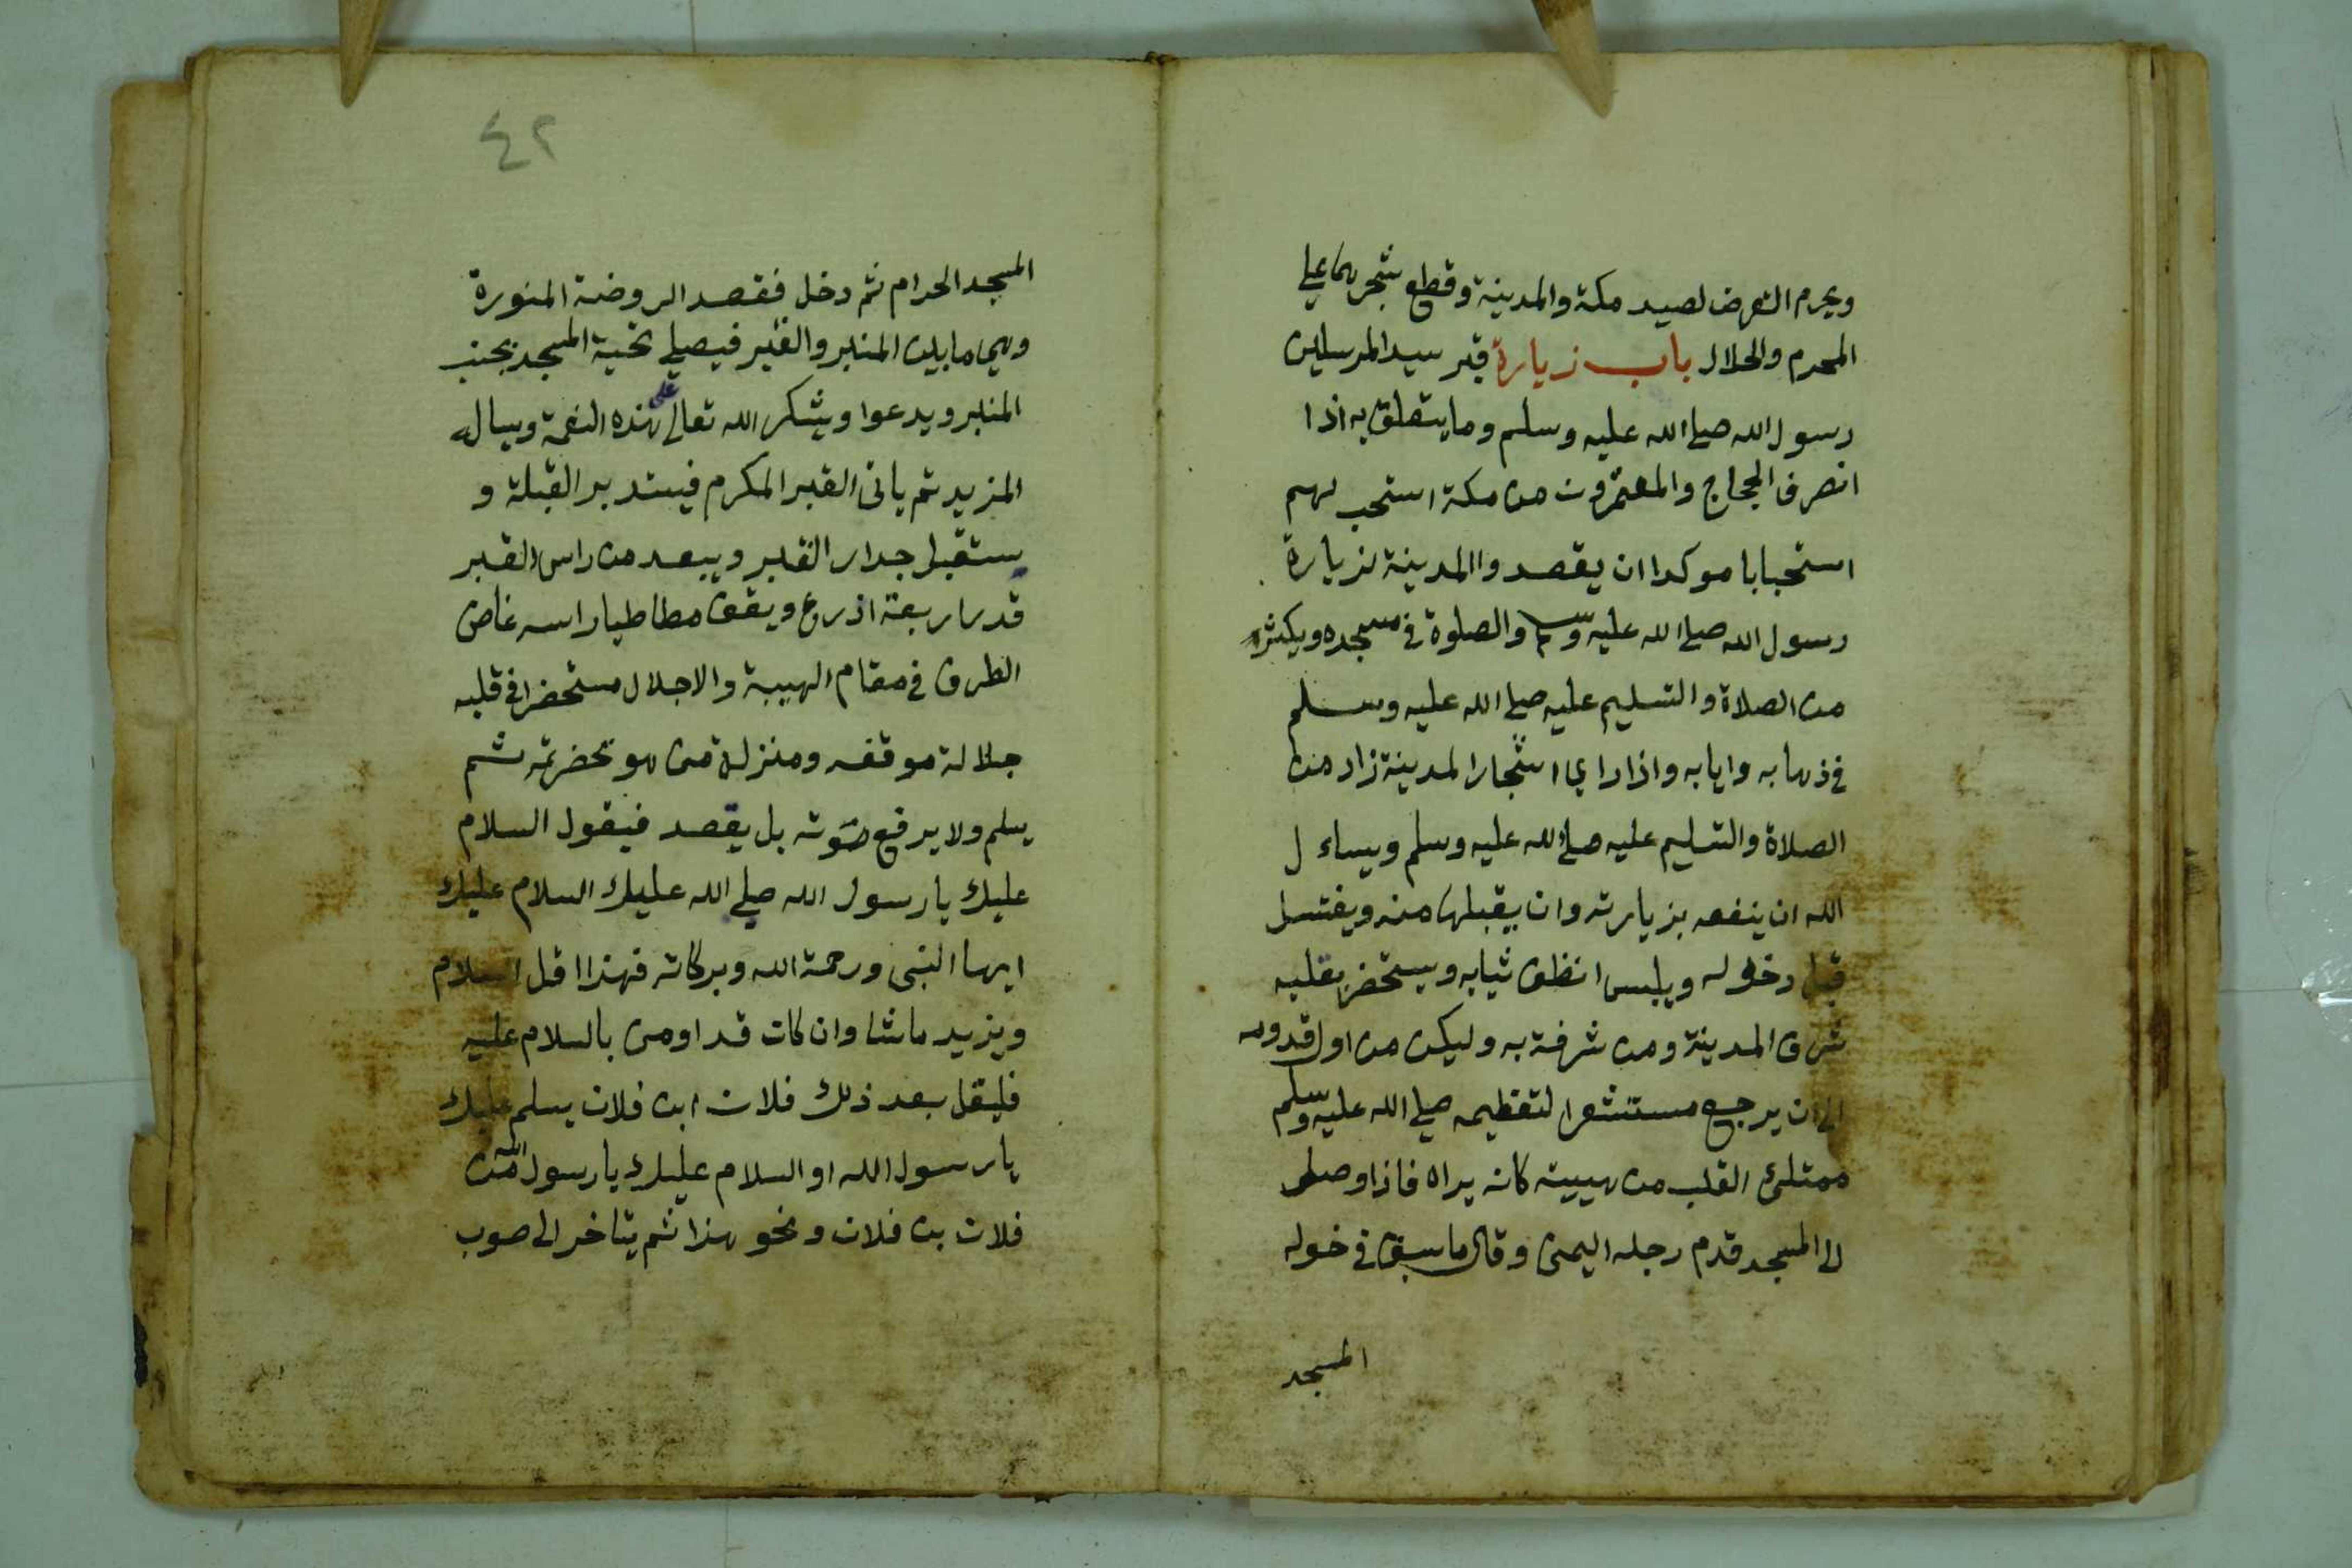 ويحرم التعرض لصيد مكة والمدينة وقطع شجرهما علي
المحرم والحلال باب زيارة قبر سيد المرسلين
رسول الله صلي الله عليه وسلم وما يتعلق به اذا
انصرف الحجاج والمعتمرون من مكة استحب لهم
استحبابا موكدا ان يقصدوا المدينة لزيارة
رسول الله صلي الله عليه وسلم والصلوة في مسجده ويكثر
من الصلاة والتسليم عليه صلي الله عليه وسلم
في ذهابه وايابه واذا راي اشجار المدينة زاد من
الصلاة والتسليم عليه صلي الله عليه وسلم ويساءل
الله ان ينفعه بزيارته وان يقبلها منه ويغتسل
قبل دخوله ويلبس انظف ثيابه ويستحضر بقلبه
شرف المدينة ومن شرفة به وليكن من اول قدومه
الي ان يرجع مستشعرا لتعظيمه صلي الله عليه وسلم
ممتلئ القلب من هيبته كانه يراه فاذا وصل
الي المسجد قدم رجله اليمنى وقال ما سبق في خوله
المسجد
٤٢
المسجد الحرام ثم دخل فقصد الروضة المنورة
وهي ما بين المنبر والقبر فيصلي تحية المسجد بجنب
المنبر ويدعوا ويشكر الله تعالي على هذه النعمة ويساله
المزيد ثم ياتى القبر المكرم فيستدبر القبلة و
يستقبل جدار القبر ويبعد من راس القبر
قدر اربعة اذرع ويقف مطاطيا راسه غاض
الطرف في مقام الهيبة والاجلال مستحضرا في قلبه
جلالة موقفه ومنزلة من هو بحضرته ثم
يسلم ولا يرفع صوته بل يقصد فيقول السلام
عليك يا رسول الله صلي الله عليك السلام عليك
ايها النبى ورحمة الله وبركاته فهذا اقل السلام
ويزيد ما شا وان كان قد اوصى بالسلام عليه
فليقل بعد ذلك فلان ابن فلان يسلم عليك
يا رسول الله او السلام عليك يا رسول الله من
فلان بن فلان ونحو هذا ثم يتاخر الى صوب